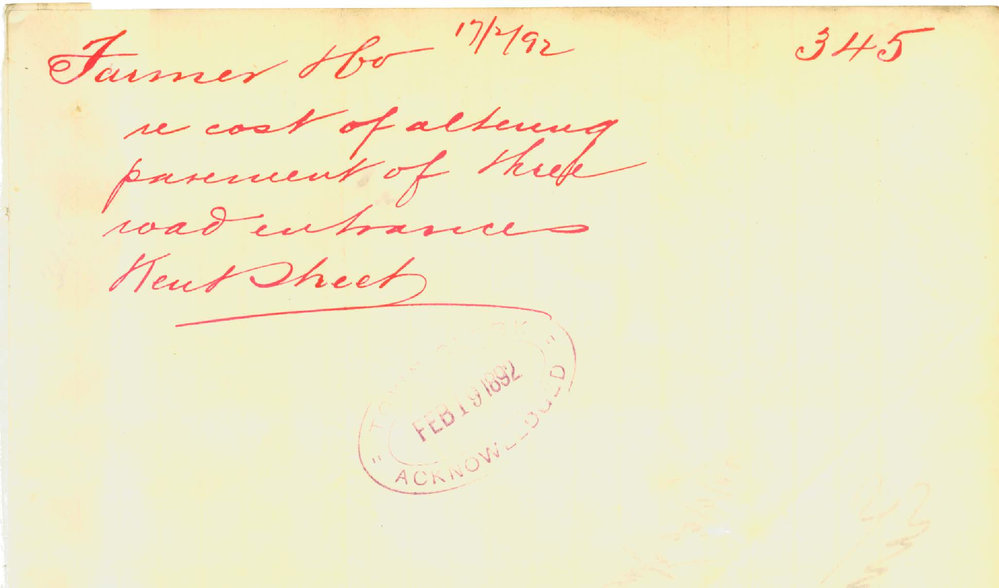 Farmer & Co 17/2/92 345
re cost of altering
pavement of three
road entrances
Kent Street
TOWN CLERK
FEB 19 1892
ACKNOWLEDGED